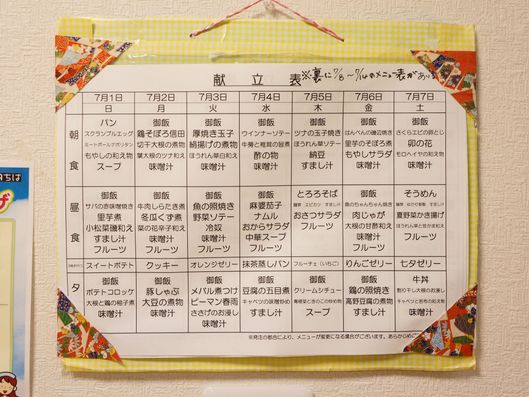 献立表
※裏に7/8～7/14のメニュー表が
7月1日 7月2日 7月3日 7月4日 7月5日 7月6日 7月7日
日 月 火 水 木 金 土
朝食
パン 御飯 御飯 御飯 御飯 御飯 御飯
スクランブルエッグ 鶏そぼろ信田 厚焼き玉子 ウインナーソテー ツナの玉子焼き はんぺんの磯辺焼き さくらエビの卵とじ
ミートボールナポリタン 切干大根の煮物 絹揚げの煮物 牛蒡と椎茸の旨煮 ほうれん草ソテー 里芋のそぼろ煮 卯の花
もやしの和え物 葉大根のツナ和え ほうれん草白和え 酢の物 納豆 もやしサラダ モロヘイヤの和え物
スープ 味噌汁 味噌汁 味噌汁 すまし汁 味噌汁 味噌汁
昼食
御飯 御飯 御飯 御飯 とろろそば 御飯 そうめん
サバの香味噌焼き 牛肉しらたき煮 魚の照焼き 麻婆茄子 魚のちゃんちゃん焼き
里芋煮 冬瓜くず煮 野菜ソテー ナムル おさつサラダ 肉じゃが 夏野菜かき揚げ
小松菜磯和え 菜の花辛子和え 冷奴 おからサラダ フルーツ 大根の甘酢和え
すまし汁 味噌汁 味噌汁 中華スープ 味噌汁 フルーツ
フルーツ フルーツ フルーツ フルーツ フルーツ
スイートポテト クッキー オレンジゼリー 抹茶蒸しパン フルーチェ(いちご) りんごゼリー 七夕ゼリー
夕
御飯 御飯 御飯 御飯 御飯 御飯 牛丼
ポテトコロッケ 豚しゃぶ メバル煮つけ 豆腐の五目煮 クリームシチュー 鶏の照焼き 割り干し大根のお浸し
大根と鶏の柚子煮 大豆の煮物 ピーマン春雨 キャベツの味噌炒め 青梗菜ときのこの炒め物 高野豆腐の煮物 キャベツと若布の和え物
味噌汁 味噌汁 ささげのお浸し すまし汁 スープ すまし汁 味噌汁
味噌汁
※発注の都合により、メニューが変更になる場合がございます。あらかじめ